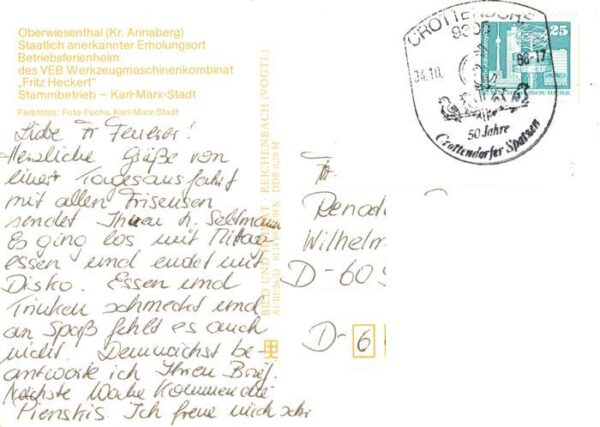 Oberwiesenthal (Kr. Annaberg)
Staatlich anerkannter Erholungsort
Betriebsferienheim
des VEB Werkzeugmaschinenkombinat
„Fritz Heckert"
Stammbetrieb – Karl-Marx-Stadt
Farbfotos: Foto-Fuchs, Karl-Marx-Stadt
Liebe Fr Feuerer!
Herzliche Grüße von
einer Tagesausfahrt
mit allen Friseusen
sendet Ihnen H. Seltmann
Es ging los mit Mittag
essen und endet mit
Disko. Essen und
Trinken schmeckt und
an Spaß fehlt es auch
nicht. Demnächst be-
antworte ich Ihren Brief.
Nächste Woche kommen die
Pienskis. Ich freue mich sehr
BILD UND HEIMAT REICHENBACH (VOGTL)
CROTTENDORF
9305
24.10. 88-17
50 Jahre
Crottendorfer Spatzen
25
Fr.
Renat
Wilhelm
D-60
D-6